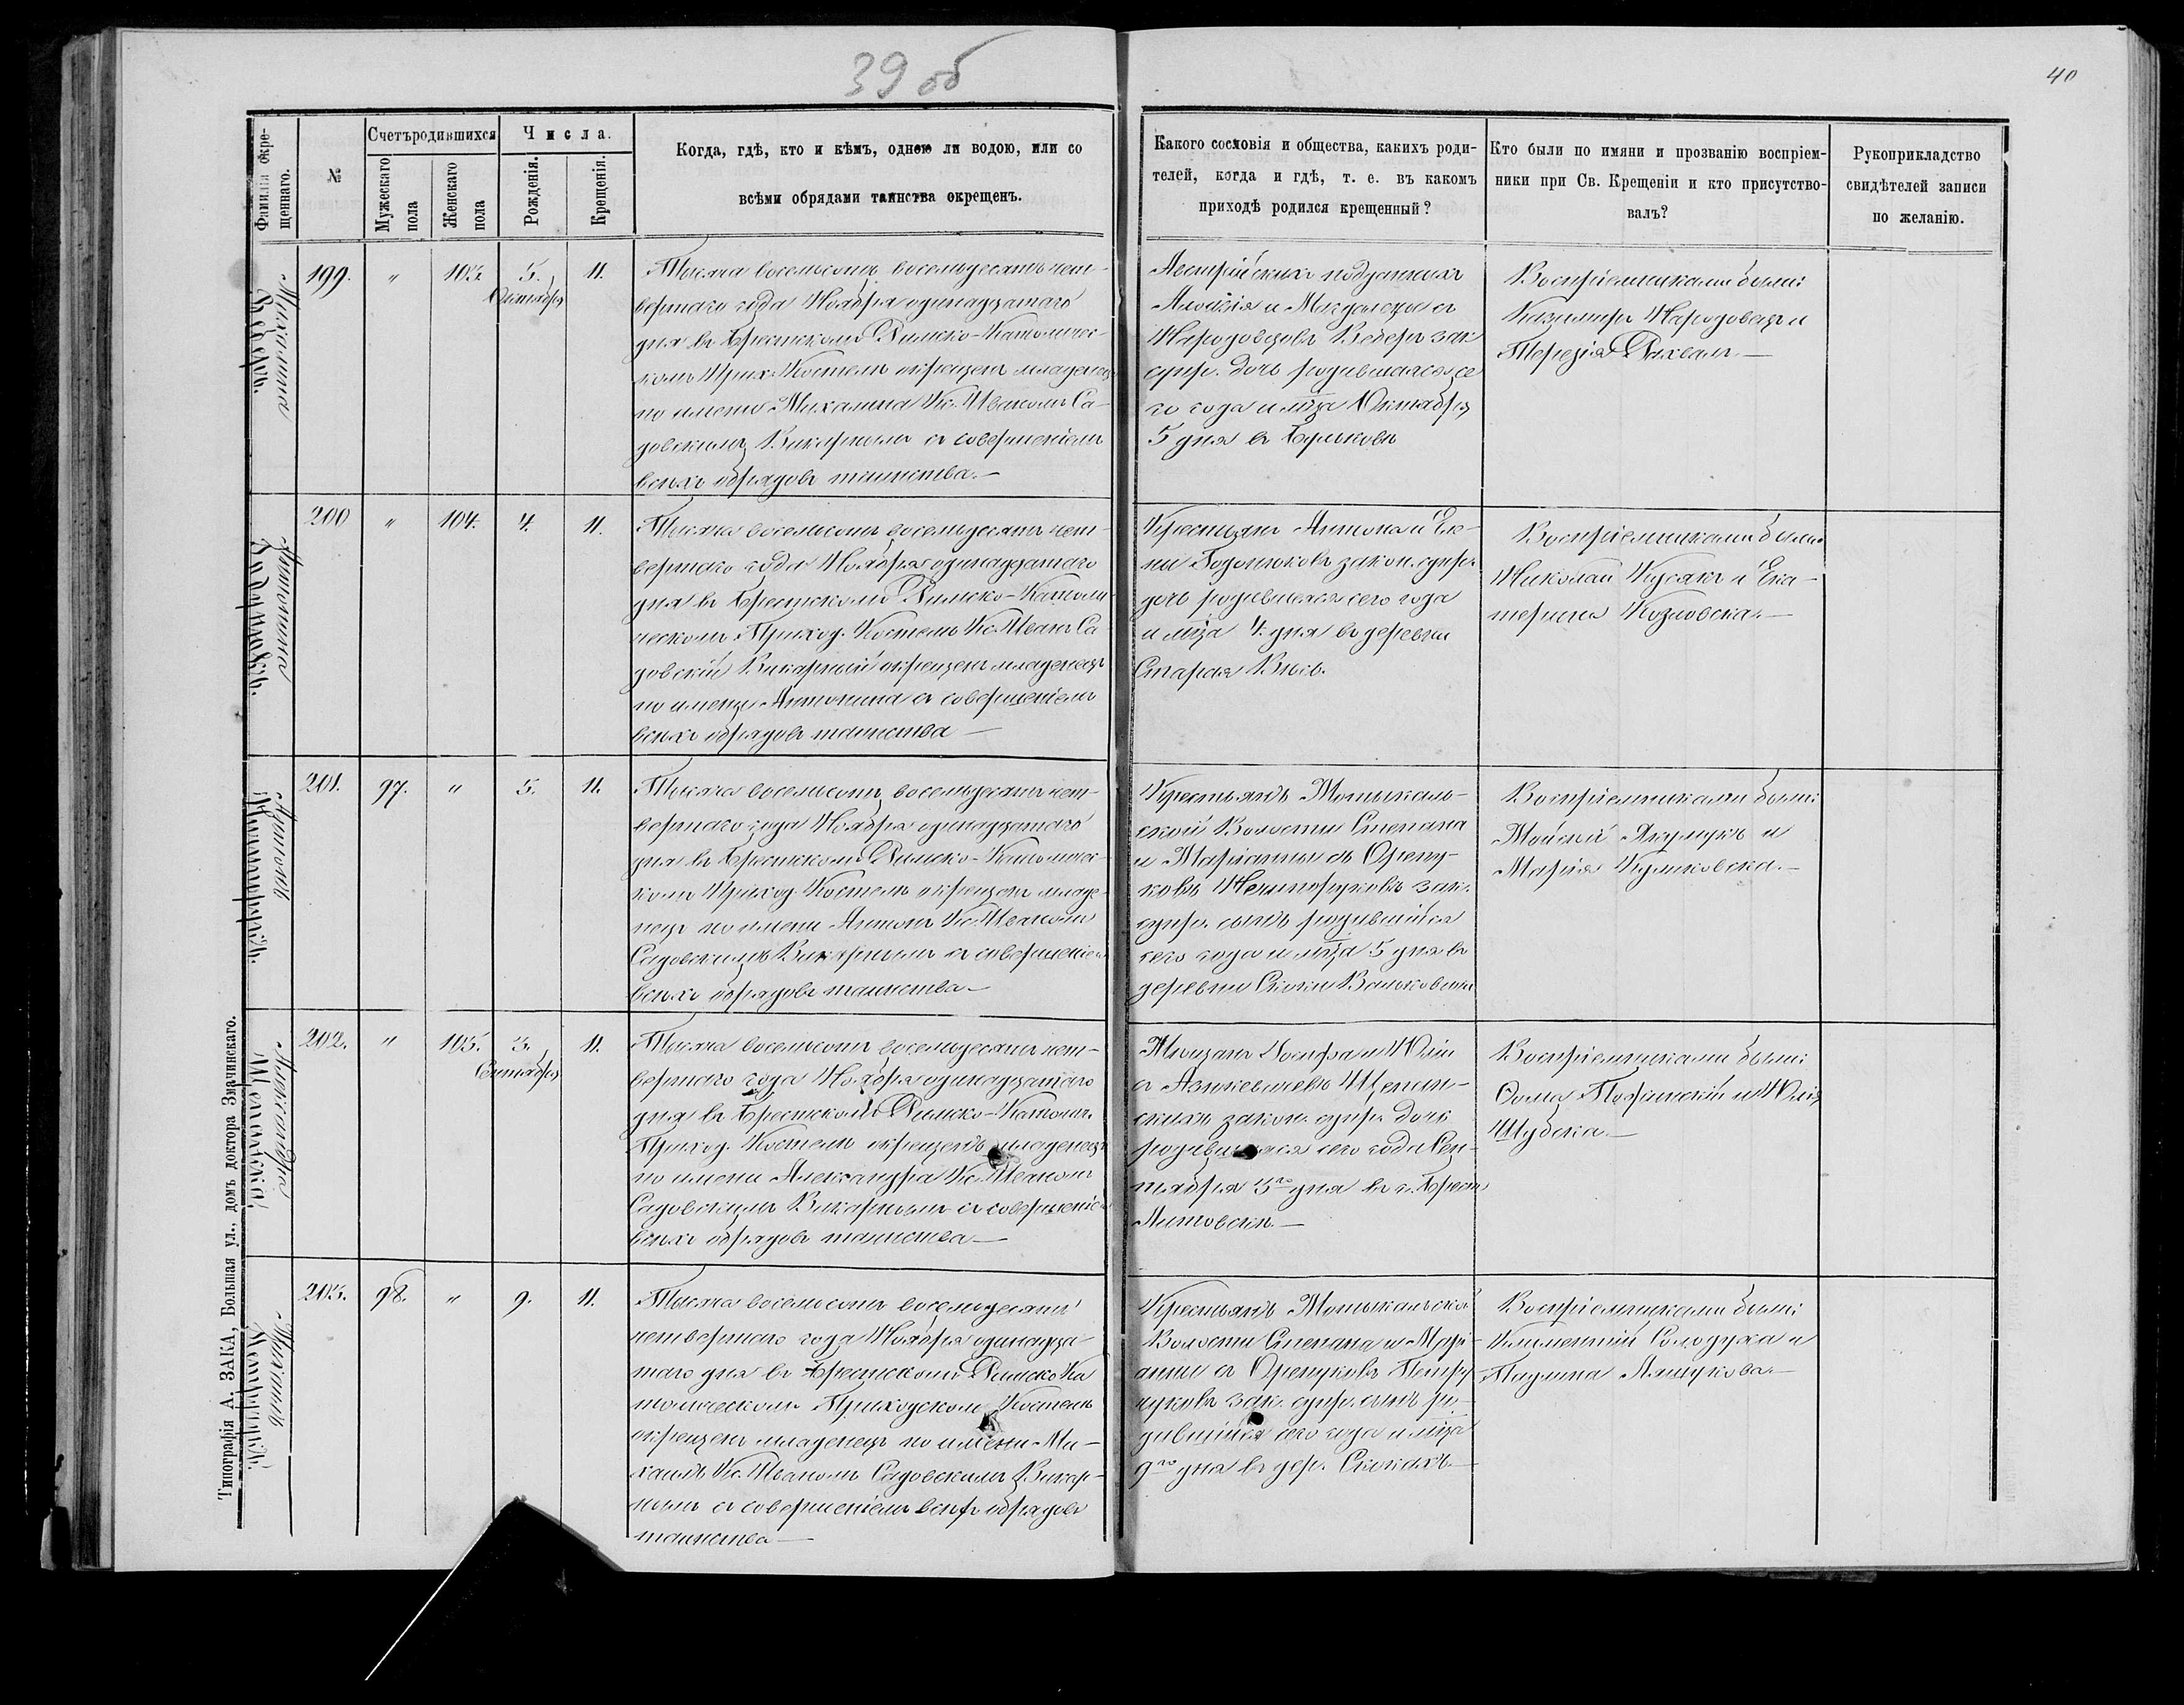 39 об
40
Фамилія окрещеннаго.
№
Счетъ родившихся
Мужескаго пола
Женскаго пола
Числа.
Рожденія.
Крещенія.
Когда, гдѣ, кто и кѣмъ, одною ли водою, или со
всѣми обрядами таинства окрещенъ.
Какого сословія и общества, какихъ роди-
телей, когда и гдѣ, т. е. въ какомъ
приходѣ родился крещенный?
Кто были по имяни и прозванію воспріем-
ники при Св. Крещеніи и кто присутство-
валъ?
Рукоприкладство
свидѣтелей записи
по желанію.
Михалина
Веберъ.
199.
"
103.
5.
Октября
11.
Тысяча восемьсотъ восемьдесятъ чет-
вертаго года Ноября одинадцатаго
дня въ Брестскомъ Римско-Католичес-
комъ Прих. Костелѣ окрещенъ младенецъ
по имени Михалина Кс. Иваномъ Са-
довскимъ Викарнымъ съ совершеніемъ
всѣхъ обрядовъ таинства.—
Австрійскихъ подданныхъ
и Магдалены съ
Веберъ зак.
супр. дочь родившаяся се
го года и мца Октября
5 дня въ
Воспріемниками были:
Казимиръ и
Терезія
Антонина
200
"
104.
4.
11.
Тысяча восемьсотъ восемьдесятъ чет-
вертаго года Ноября одинадцатаго
дня въ Брестскомъ Римско-Католи-
ческомъ Приход. Костелѣ Кс. Иванъ Са
довскій Викарный окрещенъ младенецъ
по имени Антонина съ совершеніемъ
всѣхъ обрядовъ таинства—
Крестьянъ Антона и Еле-
ны закон. супр.
дочь родившаяся сего года
и мца 4. дня въ деревни
Старая Весь.
Воспріемниками были
Николай и Ека-
терина Козловска.—
Антонъ
201.
97.
"
5.
11.
Тысяча восемьсотъ восемьдесятъ чет-
вертаго года Ноября одинадцатаго
дня въ Брестскомъ Римско-Католичес-
комъ Приход. Костелѣ окрещенъ младе-
нецъ по имени Антонъ Кс. Иваномъ
Садовскимъ Викарнымъ съ совершеніе
всѣхъ обрядовъ таинства—
Крестьянъ Мотыкаль-
ской Волости Степана
и Маріанны съ
зак.
супр. сынъ родившійся
сего года и мца 5 дня въ
деревни Скоки
Воспріемниками были:
и
Марія Куликовска.—
Александра
202.
"
105.
3.
Сентября
11.
Тысяча восемьсотъ восемьдесятъ чет-
вертаго года Ноября одинадцатаго
дня въ Брестскомъ Римско-Католич.
Приход. Костелѣ окрещенъ младенецъ
по имени Александра Кс. Иваномъ
Садовскимъ Викарнымъ съ совершеніе
всѣхъ обрядовъ таинства—
Мѣщанъ Іосифа и Юліи
съ
скихъ закон. супр. дочь
родившаяся сего года Сен-
тября 3го дня въ г. Брест
Литовскѣ—
Воспріемниками были:
Ѳома и Юлія
Михаилъ
203.
98.
"
9.
11.
Тысяча восемьсотъ восемьдесятъ
четвертаго года Ноября одинадца-
таго дня въ Брестскомъ Римско Ка
толическомъ Приходскомъ Костелѣ
окрещенъ младенецъ по имени Ми-
хаилъ Кс. Иваномъ Садовскимъ Викар-
нымъ съ совершеніемъ всѣхъ обрядовъ
таинства—
Крестьянъ Мотыкальской
Волости Степана и Марі-
анны съ
зак. супр. сынъ ро-
дившійся сего года и мца
9го дня въ дер. Скокахъ.—
Воспріемниками были:
Климентій Солодуха и
Паулина
Типографія А. ЗАКА, Большая ул., домъ доктора Змачинскаго.